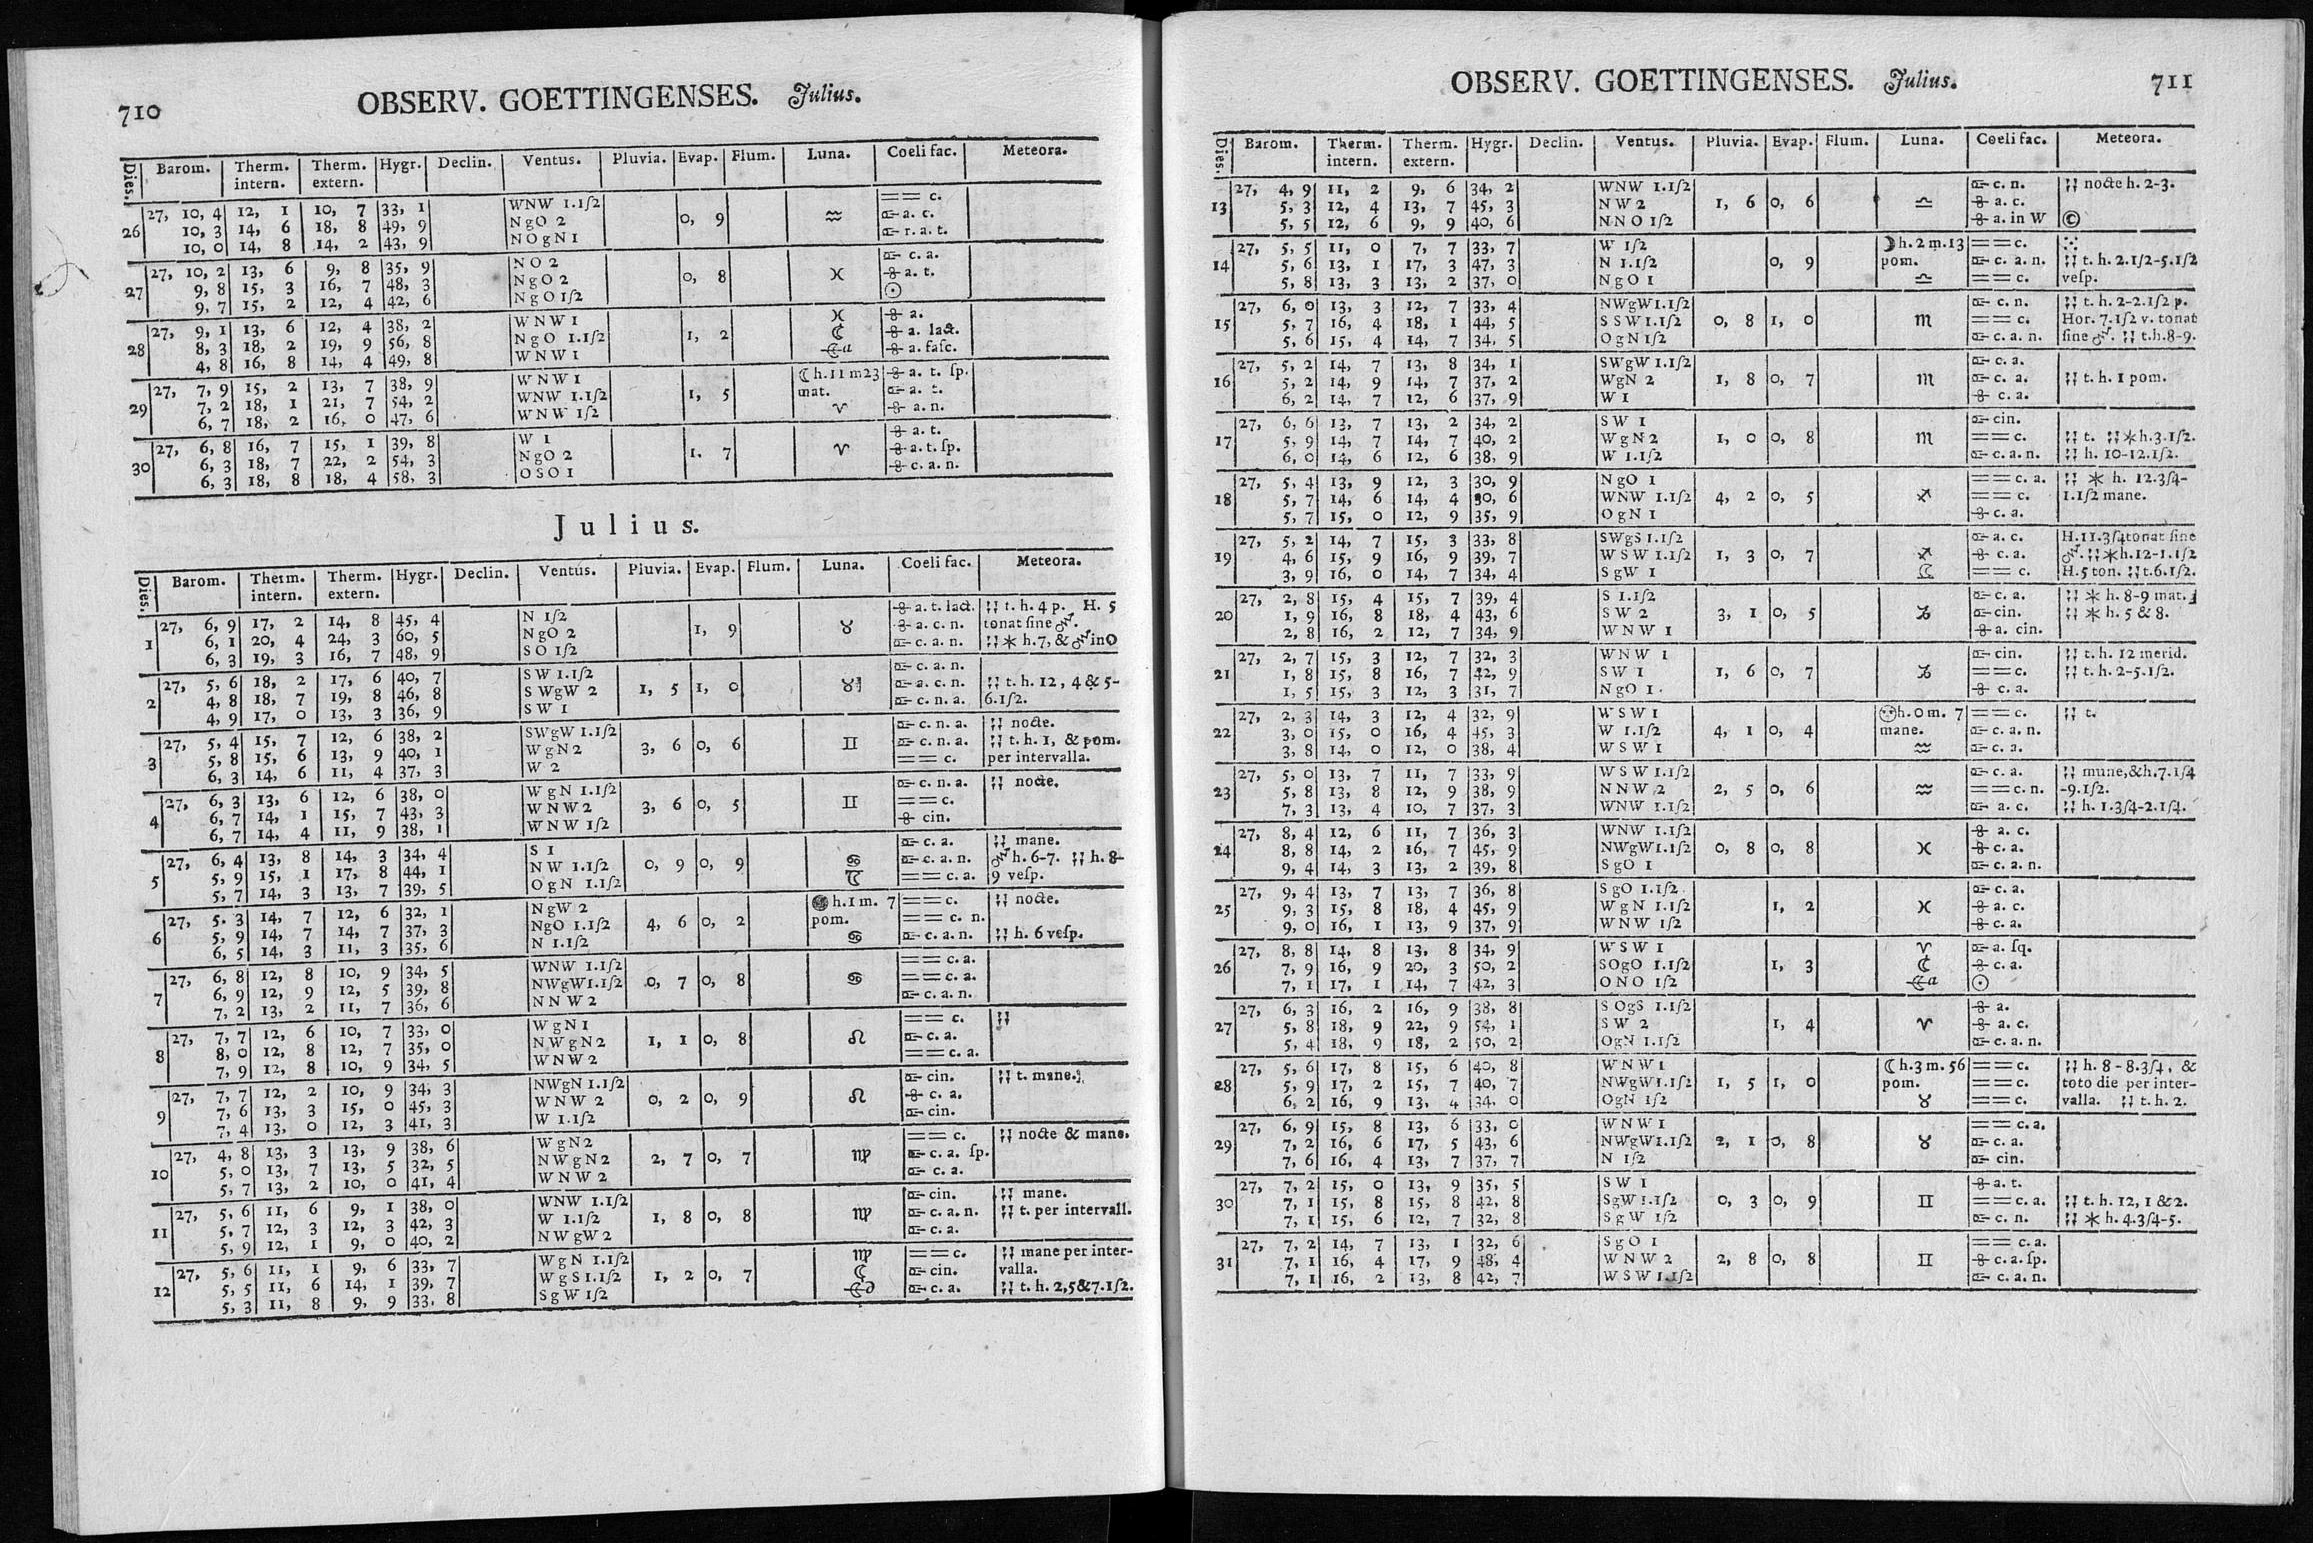 710
OBSERV. GOETTINGENSES. Julius.
Dies. Barom. Therm. intern. Therm. extern. Hygr. Declin. Ventus. Pluvia. Evap. Flum. Luna. Coeli fac. Meteora.
27, 10, 4 12, 1 10, 7 33, 1 WNW 1.1ſ2 == c.
26 10, 3 14, 6 18, 8 49, 9 NgO 2 0, 9 ♒ a. c.
10, 0 14, 8 14, 2 43, 9 NOgN1 r. a. t.
27, 10, 2 13, 6 9, 8 35, 9 NO 2 c. a.
27 9, 8 15, 3 16, 7 48, 3 NgO2 0, 8 ♓ a. t.
9, 7 15, 2 12, 4 42, 6 NgO1ſ2 ☉
27, 9, 1 13, 6 12, 4 38, 2 WNW1 ♓ a.
28 8, 3 18, 2 19, 9 56, 8 NgO 1.1ſ2 1, 2 a. lact.
4, 8 16, 8 14, 4 49, 8 WNW1 a. faſc.
27, 7, 9 15, 2 13, 7 38, 9 WNW1 ☾h.11m23 a. t. ſp.
29 7, 2 18, 1 21, 7 54, 2 WNW 1.1ſ2 1, 5 mat. a. t.
6, 7 18, 2 16, 0 47, 6 WNW 1ſ2 ♈ a. n.
27, 6, 8 16, 7 15, 1 39, 8 W 1 a. t.
30 6, 3 18, 7 22, 2 54, 3 NgO 2 1. 7 ♈ a. t. ſp.
6, 3 18, 8 18, 4 58, 3 OSO1 c. a. n.
Julius.
Dies. Barom. Therm. intern. Therm. extern. Hygr. Declin. Ventus. Pluvia. Evap. Flum. Luna. Coeli fac. Meteora.
27, 6, 9 17, 2 14, 8 45, 4 N 1ſ2 a. t. lact. t. h. 4 p. H. 5
1 6, 1 20, 4 24, 3 60, 5 NgO 2 1, 9 ♉ a. c. n. tonat ſine
6, 3 19, 3 16, 7 48, 9 SO 1ſ2 c. a. n. h. 7, & in O
27, 5, 6 18, 2 17, 6 40, 7 SW 1.1ſ2 c. a. n.
2 4, 8 18, 7 19, 8 46, 8 SWgW 2 1, 5 1, 0 ♉ a. c. n. t. h. 12, 4 & 5-
4, 9 17, 0 13, 3 36, 9 SW 1 c. n. a. 6.1ſ2.
27, 5, 4 15, 7 12, 6 38, 2 SWgW 1.1ſ2 c. n. a. nocte.
3 5, 8 15, 6 13, 9 40, 1 WgN2 3, 6 0, 6 ♊ c. n. a. t. h. 1, & pom.
6, 3 14, 6 11, 4 37, 3 W 2 == c. per intervalla.
27, 6, 3 13, 6 12, 6 38, 0 WgN 1.1ſ2 c. n. a. nocte.
4 6, 7 14, 1 15, 7 43, 3 WNW2 3, 6 0, 5 ♊ == c.
6, 7 14, 4 11, 9 38, 1 WNW 1ſ2 cin.
27, 6, 4 13, 8 14, 3 34, 4 S 1 c. a. mane.
5 5, 9 15, 1 17, 8 44, 1 NW 1.1ſ2 0, 9 0, 9 ♋ c. a. n. h. 6-7. h. 8-
5, 7 14, 3 13, 7 39, 5 OgN 1.1ſ2 == c. a. 9 veſp.
27, 5. 3 14, 7 12, 6 32, 1 NgW 2 h. 1 m. 7 == c. nocte.
6 5, 9 14, 7 14, 7 37, 3 NgO 1.1ſ2 4, 6 0, 2 pom. == c. n.
6, 5 14, 3 11, 3 35, 6 N 1.1ſ2 ♋ c. a. n. h. 6 veſp.
27, 6, 8 12, 8 10, 9 34, 5 WNW 1.1ſ2 == c. a.
7 6, 9 12, 9 12, 5 39, 8 NWgW1.1ſ2 0, 7 0, 8 ♋ == c. a.
7, 2 13, 2 11, 7 36, 6 NNW2 c. a. n.
27, 7, 7 12, 6 10, 7 33, 0 WgN1 == c.
8 8, 0 12, 8 12, 7 35, 0 NWgN2 1, 1 0, 8 ♌ c. a.
7, 9 12, 8 10, 9 34, 5 WNW2 == c. a.
27, 7, 7 12, 2 10, 9 34, 3 NWgN 1.1ſ2 cin. t. mane.
9 7, 6 13, 3 15, 0 45, 3 WNW 2 0, 2 0, 9 ♌ c. a.
7, 4 13, 0 12, 3 41, 3 W 1.1ſ2 cin.
27, 4, 8 13, 3 13, 9 38, 6 WgN2 == c. nocte & mane.
10 5, 0 13, 7 13, 5 32, 5 NWgN2 2, 7 0, 7 ♍ c. a. ſp.
5, 7 13, 2 10, 0 41, 4 WNW2 c. a.
27, 5, 6 11, 6 9, 1 38, 0 WNW 1.1ſ2 cin. mane.
11 5, 7 12, 3 12, 3 42, 3 W 1.1ſ2 1, 8 0, 8 ♍ c. a. n. t. per intervall.
5, 9 12, 1 9, 0 40, 2 NWgW2 c. a.
27, 5, 6 11, 1 9, 6 33, 7 WgN 1.1ſ2 ♍ == c. mane per inter-
12 5, 5 11, 6 14, 1 39, 7 WgS1.1ſ2 1, 2 0, 7 cin. valla.
5, 3 11, 8 9, 9 33. 8 SgW 1ſ2 c. a. t. h. 2,5&7.1ſ2.
OBSERV. GOETTINGENSES. Julius.
711
Dies. Barom. Therm. intern. Therm. extern. Hygr. Declin. Ventus. Pluvia. Evap. Flum. Luna. Coeli fac. Meteora.
27, 4, 9 11, 2 9, 6 34, 2 WNW 1.1ſ2 c. n. nocte h. 2-3.
13 5, 3 12, 4 13, 7 45, 3 NW2 1, 6 0, 6 ♎ a. c.
5, 5 12, 6 9, 9 40, 6 NNO 1ſ2 a. in W
27, 5, 5 11, 0 7, 7 33, 7 W 1ſ2 h. 2 m. 13 == c.
14 5, 6 13, 1 17, 3 47, 3 N 1.1ſ2 0, 9 pom. c. a. n. t. h. 2.1ſ2-5.1ſ2
5, 8 13, 3 13, 2 37, 0 NgO 1 ♎ == c. veſp.
27, 6, 0 13, 3 12, 7 33, 4 NWgW1.1ſ2 c. n. t. h. 2-2.1ſ2 p.
15 5, 7 16, 4 18, 1 44, 5 SSW1.1ſ2 0, 8 1, 0 ♏ == c. Hor. 7.1ſ2 v. tonat
5, 6 15, 4 14, 7 34, 5 OgN1ſ2 c. a. n. ſine t.h.8-9.
27, 5, 2 14, 7 13, 8 34, 1 SWgW 1.1ſ2 c. a.
16 5, 2 14, 9 14, 7 37, 2 WgN 2 1, 8 0, 7 ♏ c. a. t. h. 1 pom.
6, 2 14, 7 12, 6 37, 9 W 1 c. a.
27, 6, 6 13, 7 13, 2 34, 2 SW 1 cin.
17 5, 9 14, 7 14, 7 40, 2 WgN2 1, 0 0, 8 ♏ == c. t. h.3.1ſ2.
6, 0 14, 6 12, 6 38, 9 W 1.1ſ2 c. a. n. h. 10-12.1ſ2.
27, 5, 4 13, 9 12, 3 30, 9 NgO 1 == c. a. h. 12.3ſ4-
18 5, 7 14, 6 14, 4 30, 6 WNW 1.1ſ2 4, 2 0, 5 ♐ == c. 1.1ſ2 mane.
5, 7 15, 0 12, 9 35, 9 OgN 1 c. a.
27, 5, 2 14, 7 15, 3 33, 8 SWgS 1.1ſ2 a. c. H.11.3ſ4tonat ſine
19 4, 6 15, 9 16, 9 39, 7 WSW 1.1ſ2 1, 3 0, 7 ♐ c. a. h.12-1.1ſ2
3, 9 16, 0 14, 7 34, 4 SgW 1 == c. H.5 ton. t.6.1ſ2.
27, 2, 8 15, 4 15, 7 39, 4 S 1.1ſ2 c. a. h. 8-9 mat.
20 1, 9 16, 8 18, 4 43, 6 SW 2 3, 1 0, 5 ♑ cin. h. 5 & 8.
2, 8 16, 2 12, 7 34, 9 WNW 1 a. cin.
27, 2, 7 15, 3 12, 7 32, 3 WNW 1 cin. t. h. 12 merid.
21 1, 8 15, 8 16, 7 42, 9 SW 1 1, 6 0, 7 ♑ == c. t. h. 2-5.1ſ2.
1, 5 15, 3 12, 3 31, 7 NgO 1. c. a.
27, 2, 3 14, 3 12, 4 32, 9 WSW1 h. 0 m. 7 == c. t.
22 3, 0 15, 0 16, 4 45, 3 W 1.1ſ2 4, 1 0, 4 mane. c. a. n.
3, 8 14, 0 12, 0 38, 4 WSW1 ♒ c. a.
27, 5, 0 13, 7 11, 7 33, 9 WSW1.1ſ2 c. a. mune,&h.7.1ſ4
23 5, 8 13, 8 12, 9 38, 9 NNW2 2, 5 0, 6 ♒ == c. n. -9.1ſ2.
7, 3 13, 4 10, 7 37, 3 WNW 1.1ſ2 a. c. h. 1.3ſ4-2.1ſ4.
27, 8, 4 12, 6 11, 7 36, 3 WNW 1.1ſ2 a. c.
24 8, 8 14, 2 16, 7 45, 9 NWgW1.1ſ2 0, 8 0, 8 ♓ c. a.
9, 4 14, 3 13, 2 39, 8 SgO 1 c. a. n.
27, 9, 4 13, 7 13, 7 36, 8 SgO 1.1ſ2 c. a.
25 9, 3 15, 8 18, 4 45, 9 WgN 1.1ſ2 1, 2 ♓ a. c.
9, 0 16, 1 13, 9 37, 9 WNW 1ſ2 c. a.
27, 8, 8 14, 8 13, 8 34, 9 WSW1 ♈ a. ſq.
26 7, 9 16, 9 20, 3 50, 2 SOgO 1.1ſ2 1, 3 c. a.
7, 1 17, 1 14, 7 42, 3 ONO 1ſ2 ☉
27, 6, 3 16, 2 16, 9 38, 8 SOgS 1.1ſ2 a.
27 5, 8 18, 9 22, 9 54, 1 SW 2 1, 4 ♈ a. c.
5, 4 18, 9 18, 2 50, 2 OgN 1.1ſ2 c. a. n.
27, 5, 6 17, 8 15, 6 40, 8 WNW1 ☾h. 3 m. 56 == c. h. 8-8.3ſ4, &
28 5, 9 17, 2 15, 7 40, 7 NWgW1.1ſ2 1, 5 1, 0 pom. == c. toto die per inter-
6, 2 16, 9 13, 4 34. 0 OgN 1ſ2 ♉ == c. valla. t. h. 2.
27, 6, 9 15, 8 13, 6 33, 0 WNW1 == c. a.
29 7, 2 16, 6 17, 5 43, 6 NWgW1.1ſ2 2, 1 0, 8 ♉ c. a.
7, 6 16, 4 13, 7 37, 7 N 1ſ2 cin.
27, 7, 2 15, 0 13, 9 35, 5 SW1 a. t.
30 7, 1 15, 8 15, 8 42, 8 SgW1.1ſ2 0, 3 0, 9 ♊ == c. a. t. h. 12, 1 & 2.
7, 1 15, 6 12, 7 32, 8 SgW 1ſ2 c. n. h. 4.3ſ4-5.
27, 7, 2 14, 7 13, 1 32, 6 SgO1 == c. a.
31 7, 1 16, 4 17, 9 48, 4 WNW2 2, 8 0, 8 ♊ c. a. ſp.
7, 1 16, 2 13, 8 42, 7 WSW1.1ſ2 c. a. n.